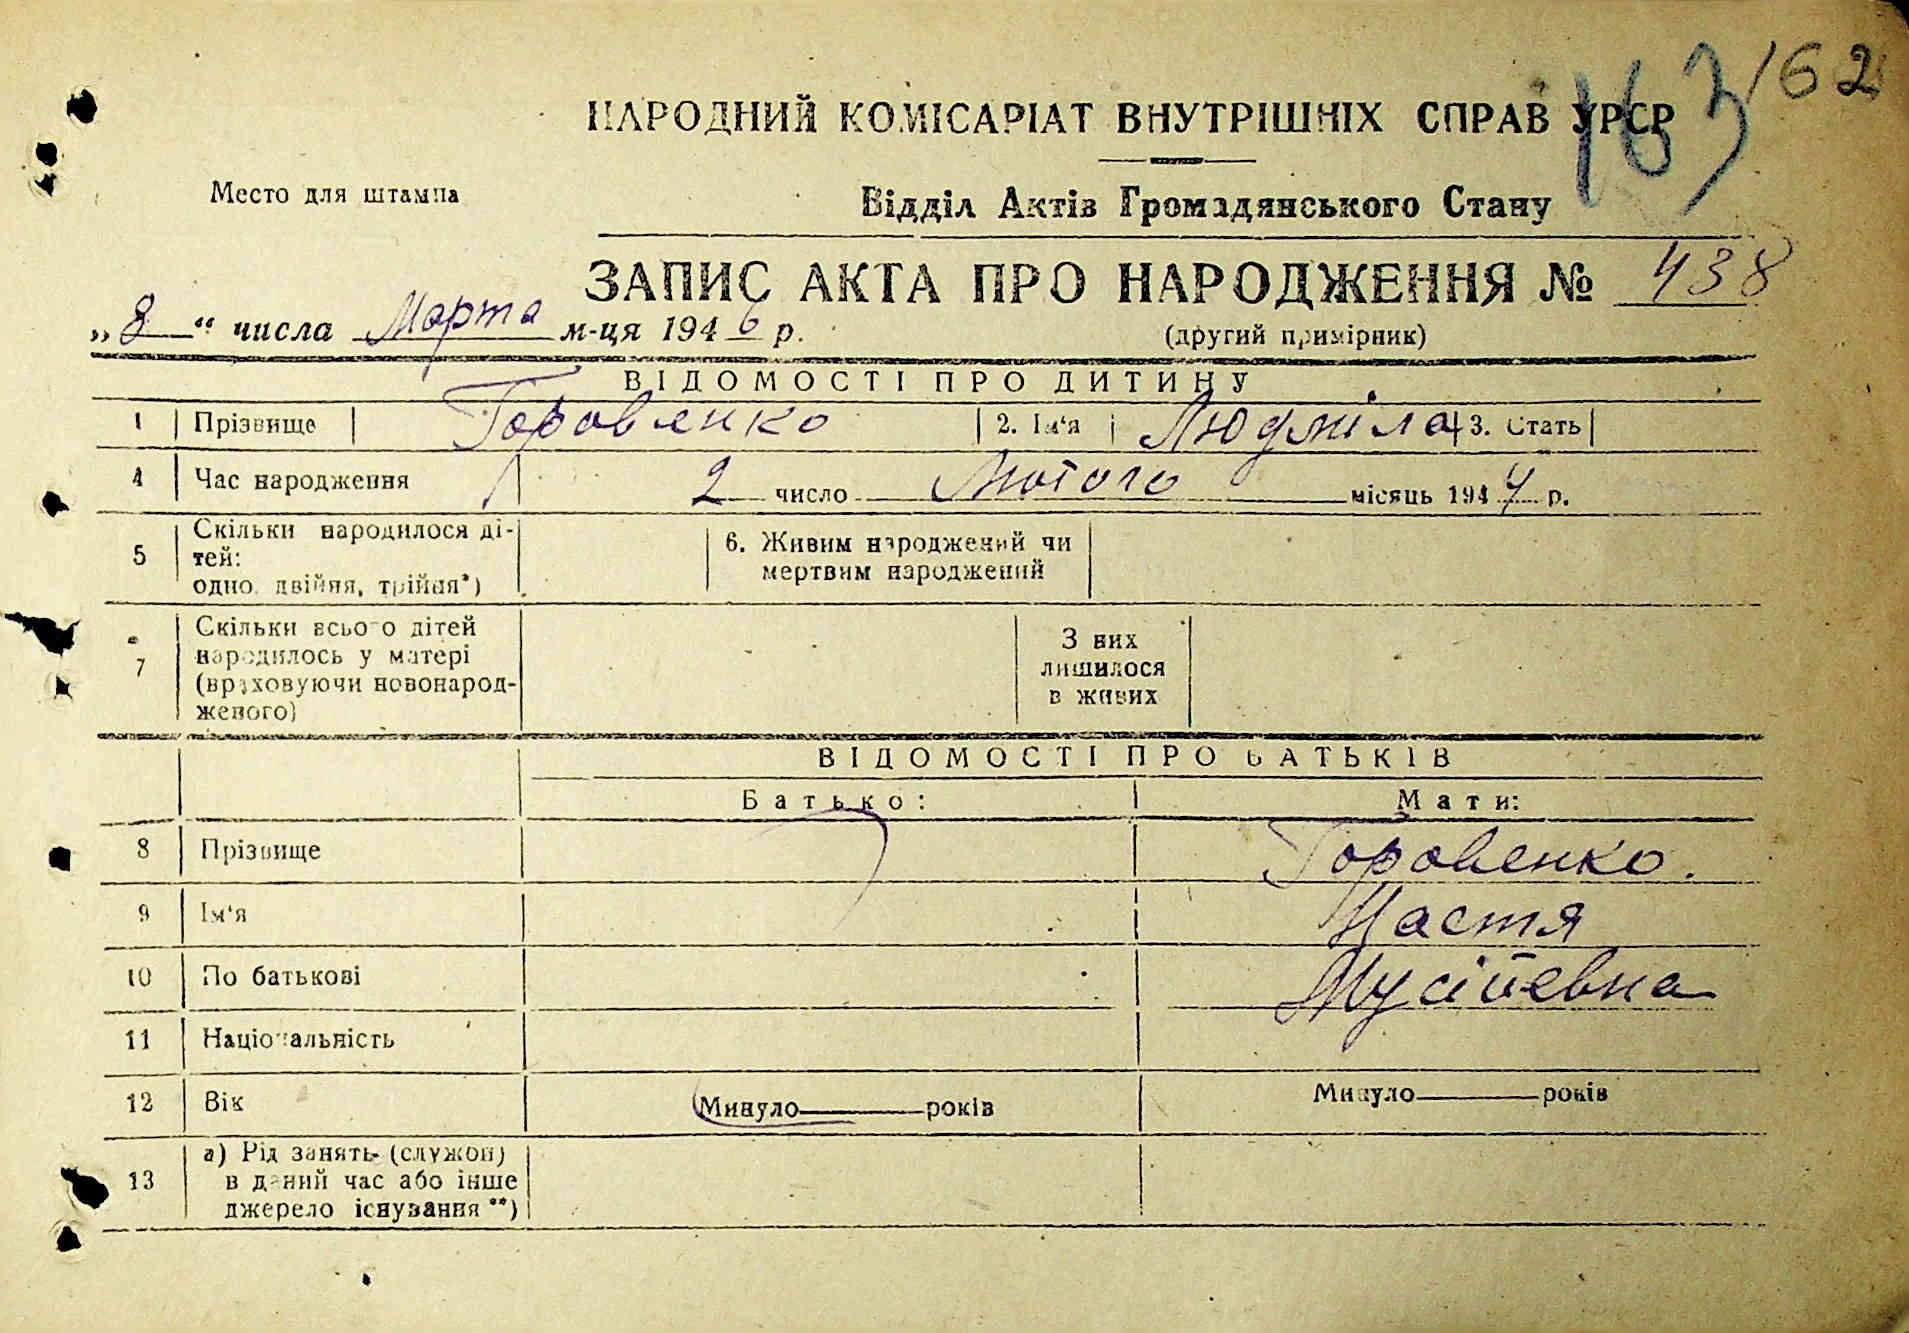 163 162
НАРОДНИЙ КОМІСАРІАТ ВНУТРІШНІХ СПРАВ УРСР
Место для штампа
Відділ Актів Громадянського Стану
ЗАПИС АКТА ПРО НАРОДЖЕННЯ № 438
„8“ числа Марта м-ця 1946 р.
(другий примірник)
ВІДОМОСТІ ПРО ДИТИНУ
1 Прізвище Горовенко 2. Ім‘я Людміла 3. Стать
4 Час народження 2 число Лютого місяць 1944 р.
5 Скільки народилося ді-
тей:
одно, двійня, трійня*)
6. Живим народжений чи
мертвим народжений
7 Скільки всього дітей
народилось у матері
(враховуючи новонарод-
женого)
З них
лишилося
в живих
ВІДОМОСТІ ПРО БАТЬКІВ
Батько: Мати:
8 Прізвище Горовенко.
9 Ім‘я Настя
10 По батькові Мусіївна
11 Національність
12 Вік Минуло років Минуло років
13 а) Рід занять (служби)
в даний час або інше
джерело існування **)